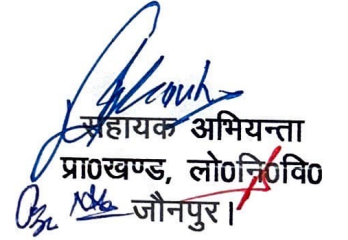 सहायक अभियन्ता
प्रा0खण्ड, लो0नि0वि0
जौनपुर।